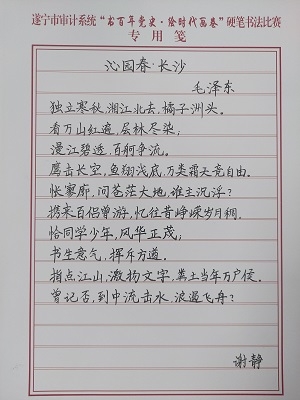 遂宁市审计系统“书百年党史·绘时代画卷”硬笔书法比赛
专用笺
沁园春·长沙
毛泽东
独立寒秋，湘江北去，橘子洲头。
看万山红遍，层林尽染；
漫江碧透，百舸争流。
鹰击长空，鱼翔浅底，万类霜天竞自由。
怅寥廓，问苍茫大地，谁主沉浮？
携来百侣曾游，忆往昔峥嵘岁月稠。
恰同学少年，风华正茂；
书生意气，挥斥方遒。
指点江山，激扬文字，粪土当年万户侯。
曾记否，到中流击水，浪遏飞舟？
谢静